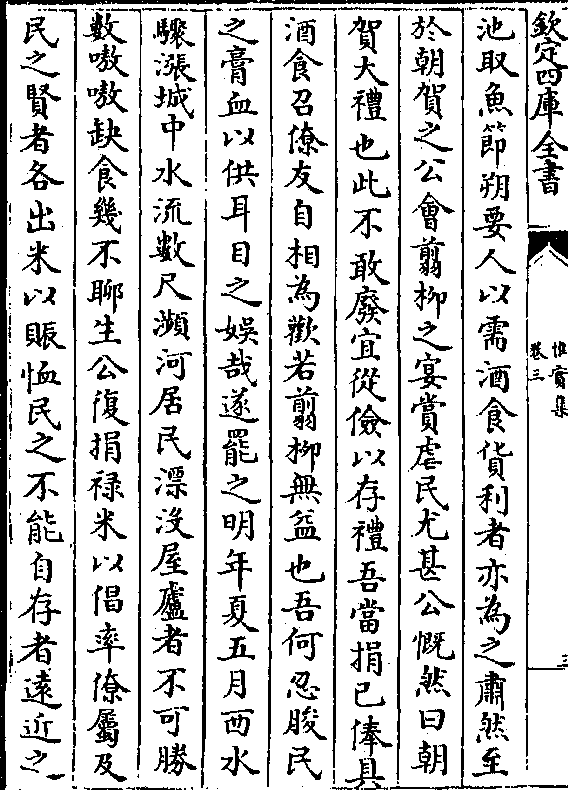 欽定四庫全書
惟實集
卷三
三
池取魚節朔要人以需酒食貨利者亦為之肅然至
於朝賀之公會翦柳之宴賞虐民尤甚公慨然曰朝
賀大禮也此不敢廢宜從儉以存禮吾當捐已俸具
酒食召僚友自相為歡若翦柳無益也吾何忍朘民
之膏血以供耳目之娛哉遂罷之明年夏五月西水
驟漲城中水流數尺瀕河居民漂沒屋廬者不可勝
數嗷嗷缺食幾不聊生公復捐祿米以倡率僚屬及
民之賢者各出米以賑恤民之不能自存者遠近之